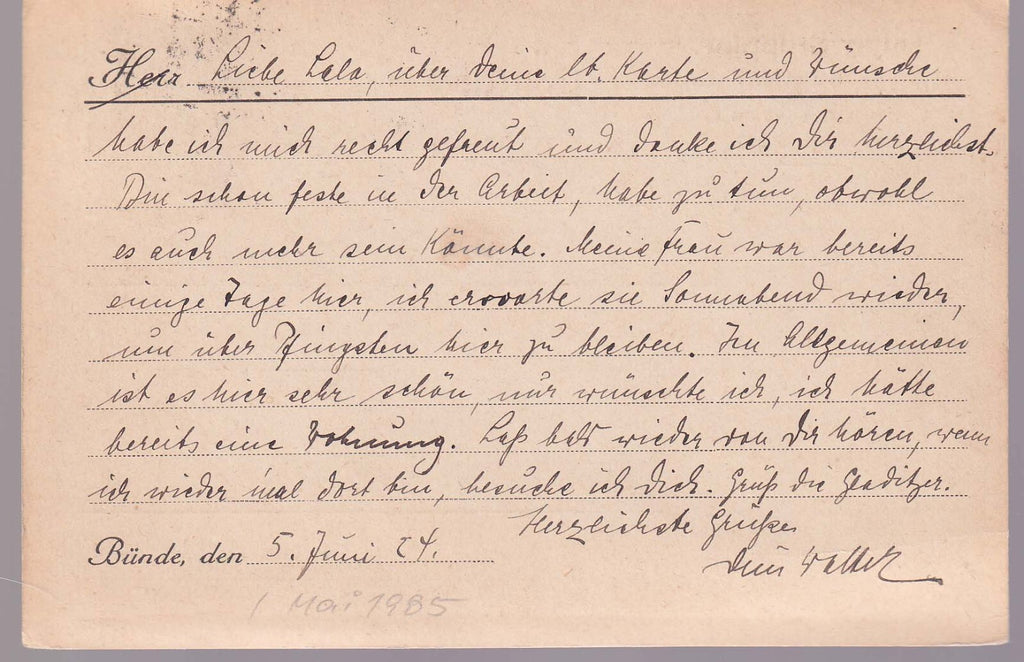 Herr Liebe Lala, über Deine lb. Karte und Wünsche
habe ich mich recht gefreut und danke ich Dir herzlichst.
Bin schon feste in der Arbeit, habe zu tun, obwohl
es auch mehr sein könnte. Meine Frau war bereits
einige Tage hier, ich erwarte sie Sonnabend wieder,
um über Pfingsten hier zu bleiben. Im Allgemeinen
ist es hier sehr schön, nur wünschte ich, ich hätte
bereits eine Wohnung. Laß bald wieder von Dir hören, wenn
ich wieder mal dort bin, besuche ich Dich. Grüß die
Herzlichste Grüße
Bünde, den 5. Juni 24.
Dein Walter
1 Mai 1985